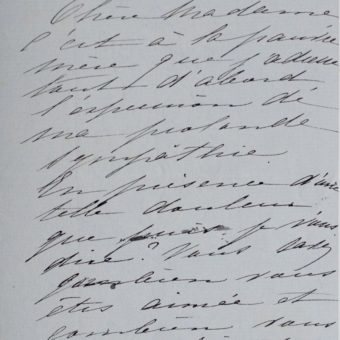 Chère Madame
c'est à la pauvre
mère que j'adresse
tout d'abord
l'expression de
ma profonde
sympathie.
En présence d'une
telle douleur
que puis je vous
dire? Vous savez
combien vous
êtes aimée et
combien vous